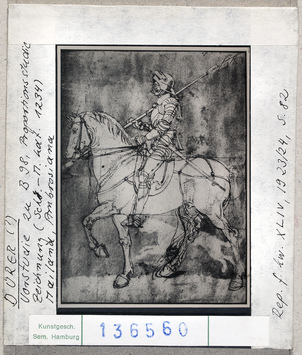 DÜRER (?)
Vorstudie zu B 98, Proportionsstudie
Zeichnung (Sch.-M. Kat. 1234)
Mailand, Ambrosiana
Rep. f. Kw. XLIV, 1923/24, S. 82
Kunstgesch.
Sem. Hamburg
136560